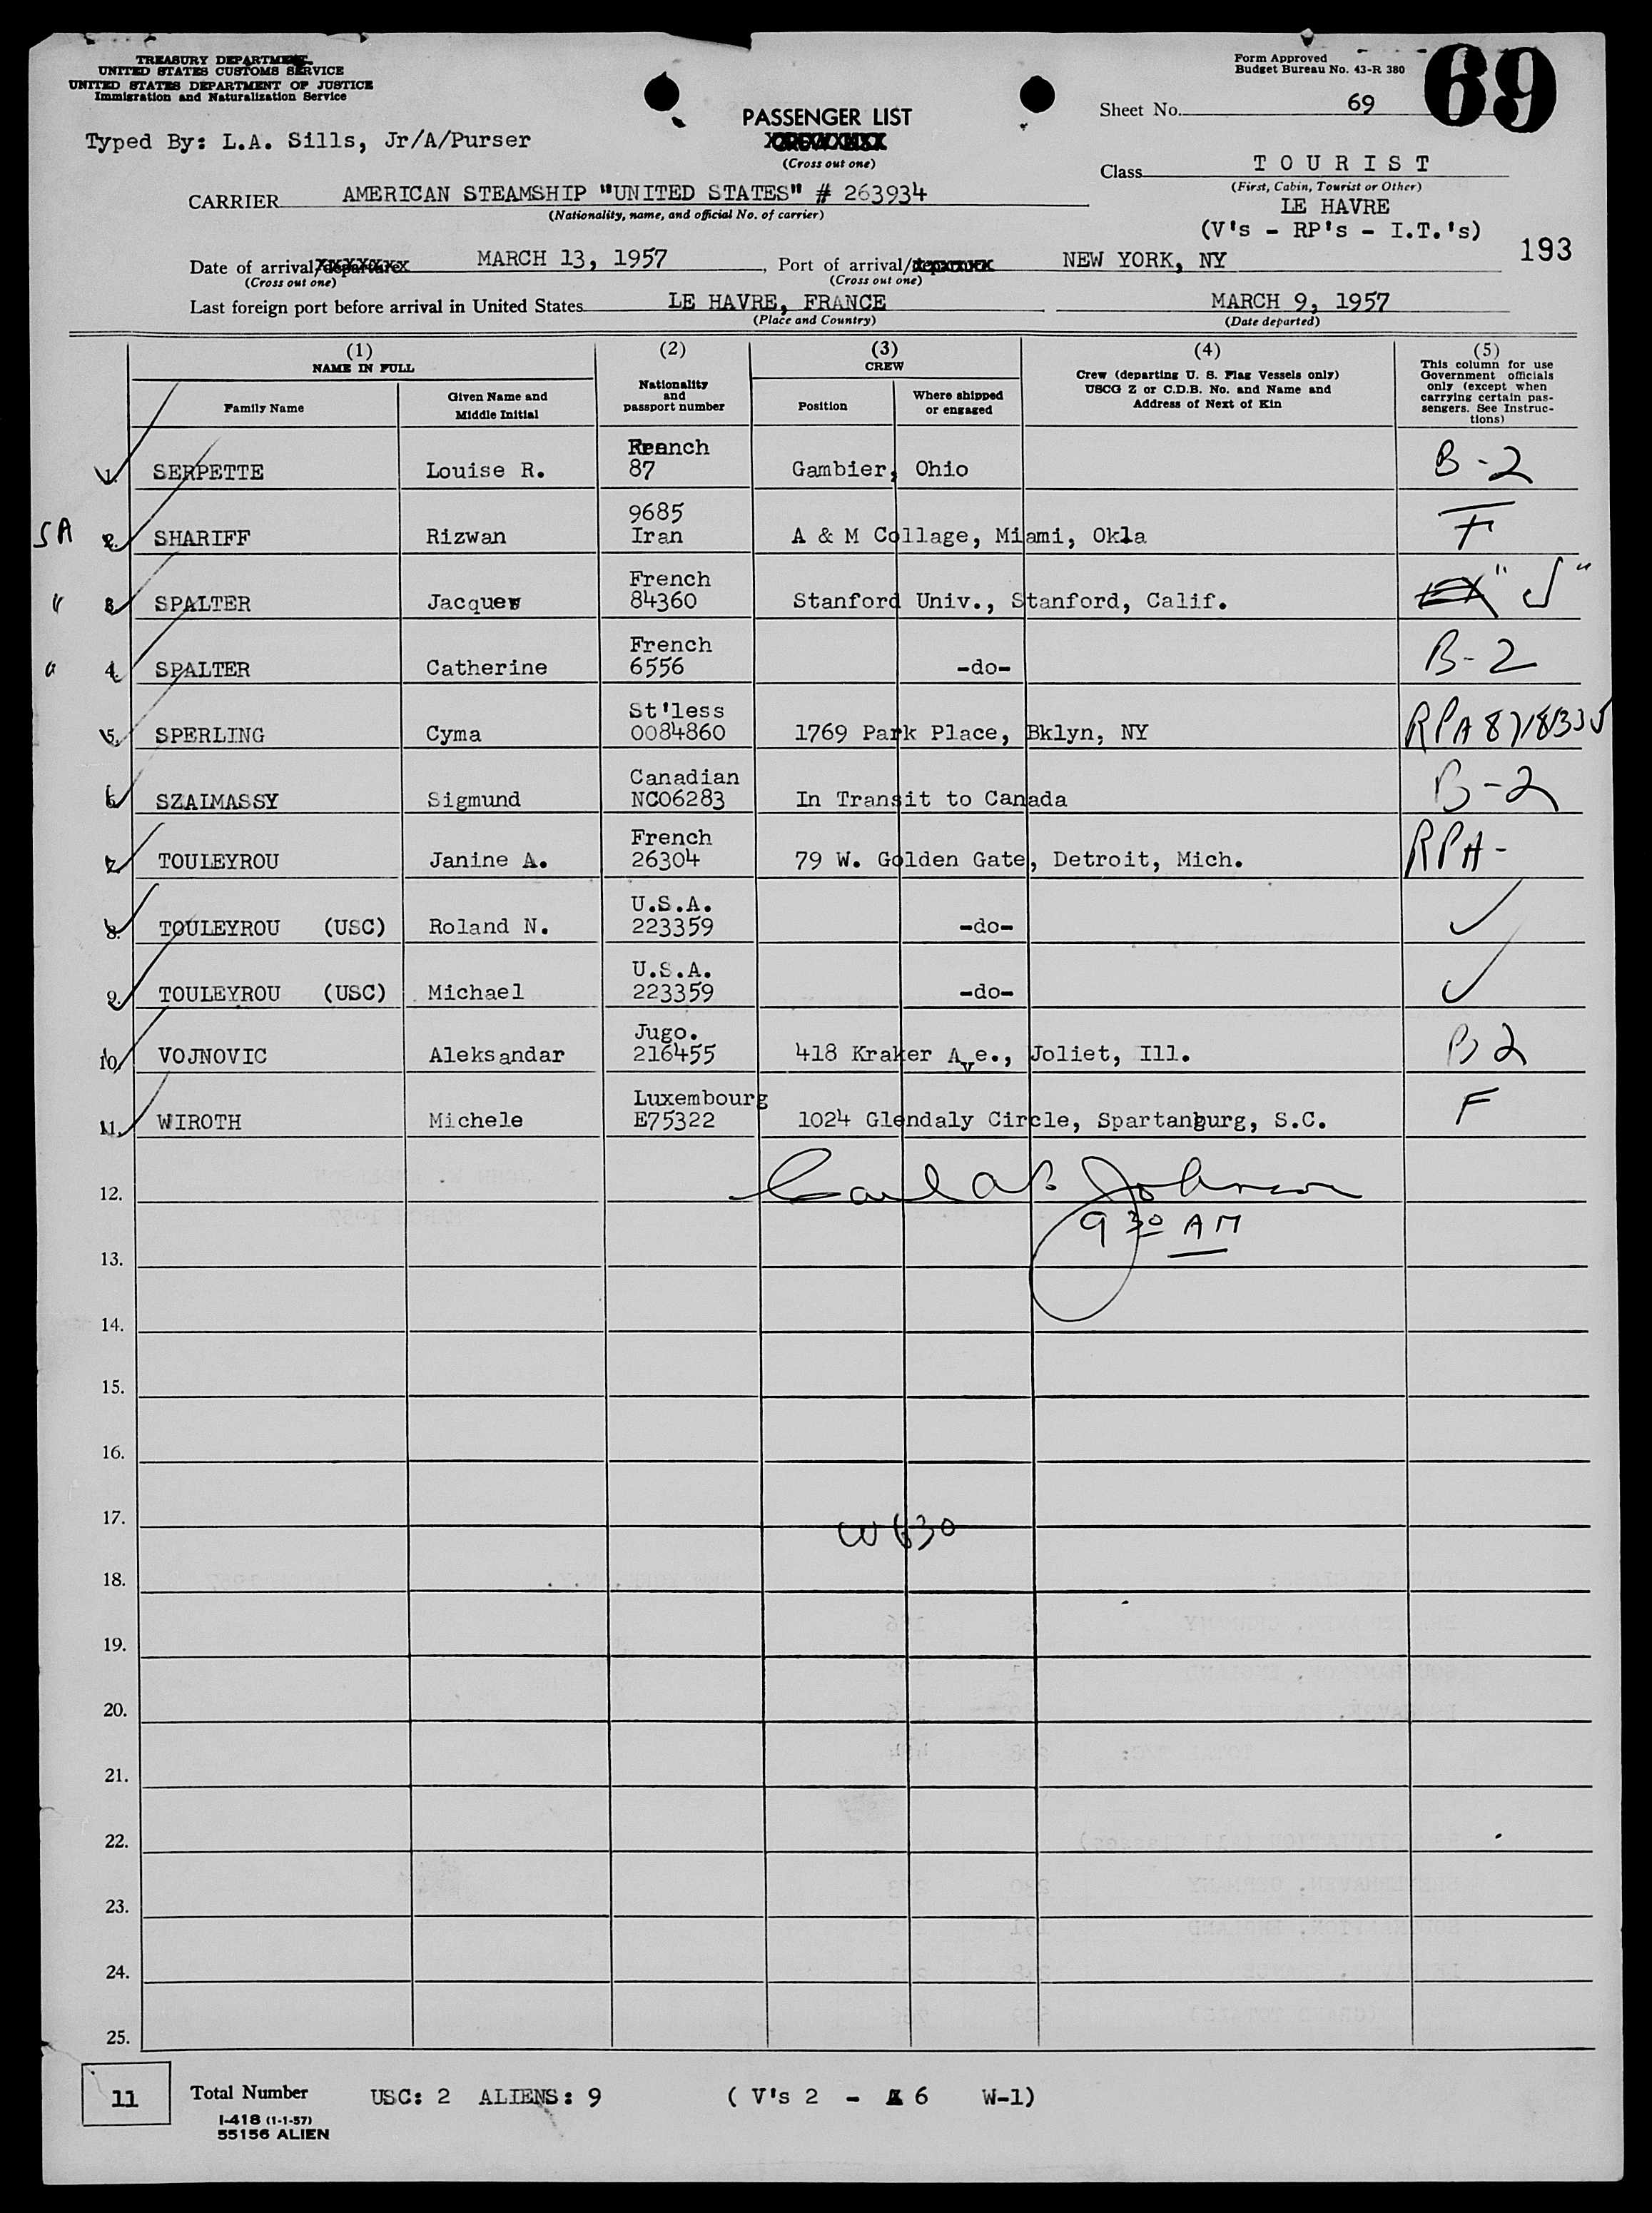 TREASURY DEPARTMENT
UNITED STATES CUSTOMS SERVICE
UNITED STATES DEPARTMENT OF JUSTICE
Immigration and Naturalization Service
Form Approved
Budget Bureau No. 43-R 380
69
Sheet No. 69
PASSENGER LIST
(Cross out one)
Typed By: L.A. Sills, Jr/A/Purser
Class TOURIST
(First, Cabin, Tourist or Other)
CARRIER AMERICAN STEAMSHIP "UNITED STATES" # 263934
(Nationality, name, and official No. of carrier)
LE HAVRE
(V's - RP's - I.T.'s)
193
Date of arrival/departure MARCH 13, 1957, Port of arrival/ NEW YORK, NY
(Cross out one) (Cross out one)
Last foreign port before arrival in United States LE HAVRE, FRANCE MARCH 9, 1957
(Place and Country) (Date departed)
(1) NAME IN FULL
Family Name
Given Name and Middle Initial
(2) Nationality and passport number
(3) CREW
Position
Where shipped or engaged
(4) Crew (departing U. S. Flag Vessels only) USCG Z or C.D.B. No. and Name and Address of Next of Kin
(5) This column for use Government officials only (except when carrying certain passengers. See Instructions)
1. SERPETTE Louise R. French 87 Gambier, Ohio B-2
SA 2. SHARIFF Rizwan 9685 Iran A & M Collage, Miami, Okla F
" 3. SPALTER Jacques French 84360 Stanford Univ., Stanford, Calif. "J"
" 4. SPALTER Catherine French 6556 -do- B-2
5. SPERLING Cyma St'less 0084860 1769 Park Place, Bklyn, NY RPA
6. SZAIMASSY Sigmund Canadian NC06283 In Transit to Canada B-2
7. TOULEYROU Janine A. French 26304 79 W. Golden Gate, Detroit, Mich. RPA-
8. TOULEYROU (USC) Roland N. U.S.A. 223359 -do- ✓
9. TOULEYROU (USC) Michael U.S.A. 223359 -do- ✓
10. VOJNOVIC Aleksandar Jugo. 216455 418 Kraker Ave., Joliet, Ill. B2
11. WIROTH Michele Luxembourg E75322 1024 Glendaly Circle, Spartanburg, S.C. F
12. Johnson
9 30 AM
13.
14.
15.
16.
17.
W630
18.
19.
20.
21.
22.
23.
24.
25.
11 Total Number USC: 2 ALIENS: 9 ( V's 2 - 6 W-1)
I-418 (1-1-57)
55156 ALIEN